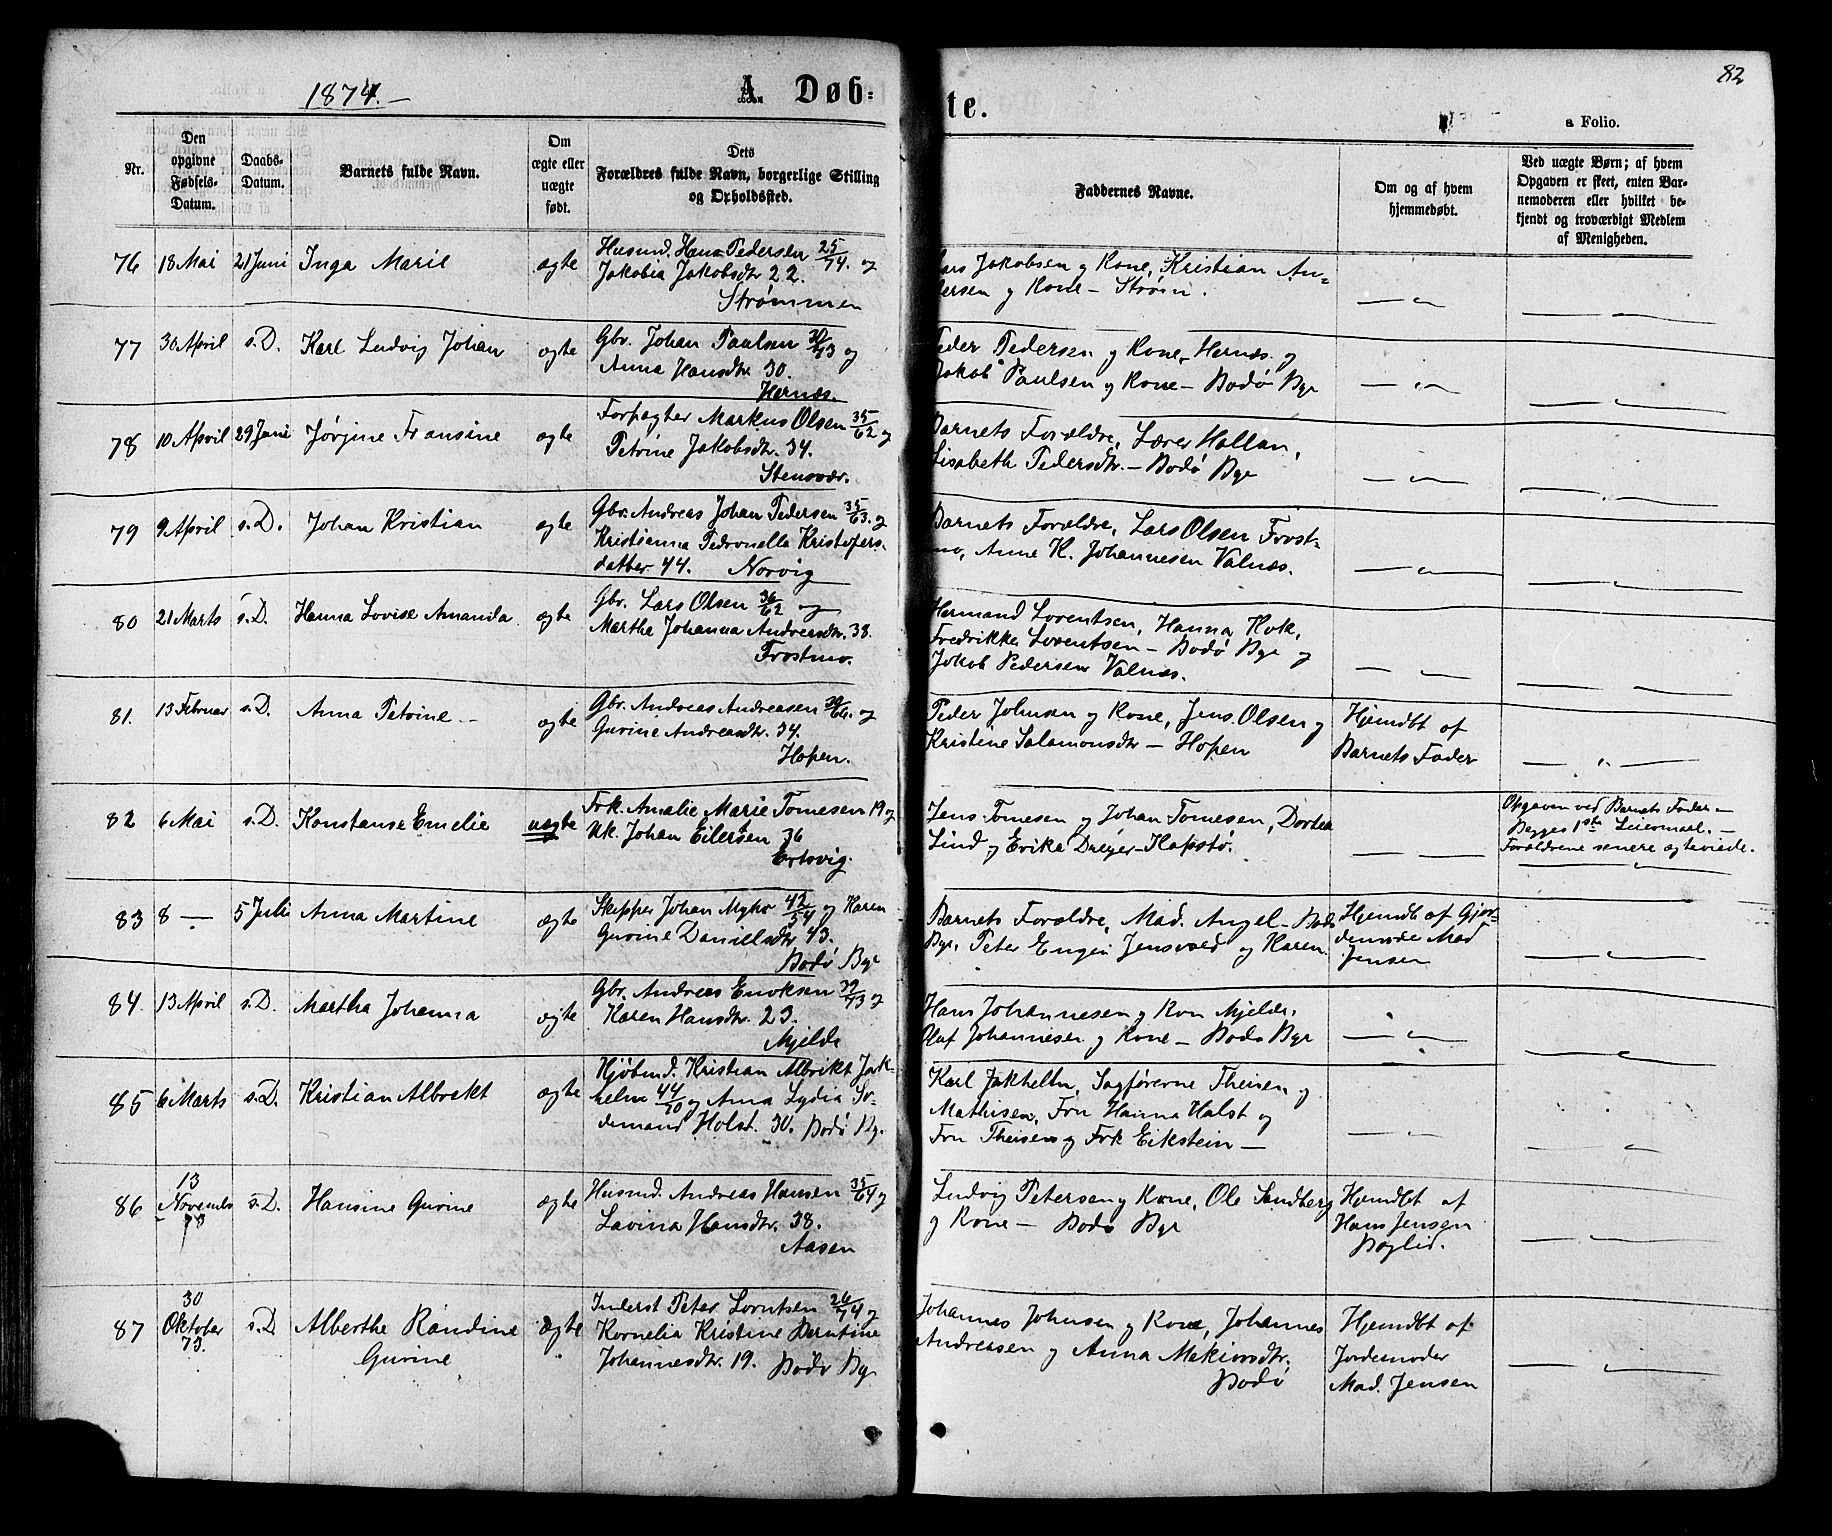 1874.—
A. Døb=
te.
82
a Folio.
Nr.
Den opgivne Fødsels-Datum.
Daabs-Datum.
Barnets fulde Navn.
Om ægte eller uægte født.
Dets Forældres fulde Navn, borgerlige Stilling og Opholdssted.
Faddernes Navne.
Om og af hvem hjemmedøbt.
Ved uægte Børn; af hvem Opgaven er skeet, enten Barnemoderen eller hvilket bekjendt og troværdigt Medlem af Menigheden.
76 18 Mai 21 Juni Inga Marie ægte
Husmd. Hans Pedersen 25/74. og
Jakobia Jakobsdtr 22.
Strømmen
Lars Jakobsen og Kone, Kristian An=
dersen og Kone – Strøm.
77 30 April s.D. Karl Ludvig Johan ægte
Gbr. Johan Paulsen 30/73 og
Anna Hansdtr 30.
Hernæs.
Peder Pedersen og Kone, Hernæs og
Jakob Paulsen og Kone – Bodø By
78 10 April 29 Juni Jørgine Fransine ægte
Forpagter Markus Olsen 35/62 og
Petrine Jakobsdtr. 34.
Stensvær.
Barnets Forældre, Lærer Hallan,
Lisabeth Pedersdtr. – Bodø By
79 9 April s.D. Johan Kristian ægte
Gbr. Andreas Johan Pedersen 35/63. og
Kristianna Pedronella Kristofers-
datter 44. Norvig
Barnets Forældre, Lars Olsen Frost-
mo, Anne K. Johannesen Valnæs.
80 21 Marts s.D. Hanna Lovise Amanda. ægte
Gbr. Lars Olsen 36/62 og
Martha Johanna Andreasdtr. 38.
Frostmo.
Hermand Lorentsen, Hanna Kok,
Fredrikke Lorentsen – Bodø By og
Jakob Pedersen Valnæs.
81. 13 Februar s.D. Anna Petrine – ægte
Gbr. Andreas Andreasen og
Gurine Andreasdtr. 34.
Hopen.
Peder Johnsen og Kone, Jens Olsen og
Kristine Salamonsdtr – Hopen
Hjemdbt af
Barnets Fader
82 6 Mai s.D. Konstanse Emelie uægte
Frk. Amalie Marie Tomesen 19 og
Uk. Johan Eilersen 36
Ertsvig.
Jens Tomesen og Johan Tomesen, Dortea
Lind og Erika Dreyer – Kopstø.
Opgaven ved Barnets Fader –
Begges 1ste Leiermaal. –
Forældrene senere ægteviede.
83 8 — 5 Juli Anna Martine ægte
Skipper Johan Myhr 42/54 og Karen
Gurine Danielsdtr 43.
Bodø By
Barnets Forældre, Mad. Angel – Bodø
By, Peter Engen Jensvold og Karen
Hjemdbt af Gjor-
demode Mad
Jensen
84. 13 April s.D. Martha Johanna ægte
Gbr. Andreas Enoksen 39/73 og
Karen Hansdtr. 23.
Mjelde
Hans Johannesen og Kon Mjelde.
Oluf Johannesen og Kone – Bodø By
85 6 Marts s.D. Kristian Albrekt ægte
Kjøbmd. Kristian Albrikt Jak-
helln 44/70 og Anna Lydia So-
demand Holst. 30. Bodø By.
Karl Jakhelln, Sagførerne Theisen og
Mathisen, Fru Hanna Holst og
Fru Theisen og Frk Eikstein –
86 13 November 73 s.D. Hansine Gurine ægte
Husmd. Andreas Hansen 35/64 og
Lavina Hansdtr. 38.
Aasen
Ludvig Petersen og Kone, Ole Sandberg
og Kone – Bodø By
Hjemdbt af
Hans Jensen
Bøglid.
87 30 Oktober 73. s.D Alberthe Randine Gurine ægte
Inderst Peter Lorntsen 26/74 og
Kornelia Kristine Berntine
Johannesdtr. 19. Bodø By
Johannes Johnsen og Kone, Johannes
Andreasen og Anna Mekiorsdtr.
Bodø
Hjemdbt af
Jordemoder
Mad. Jensen